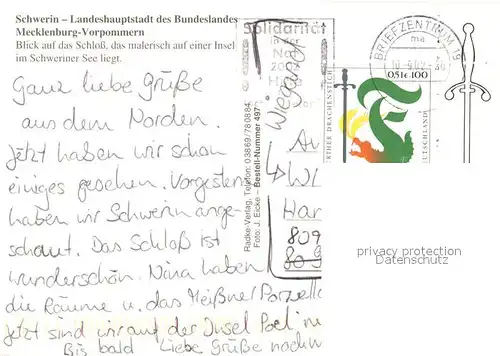 Schwerin – Landeshauptstadt des Bundeslandes
Mecklenburg-Vorpommern
Blick auf das Schloß, das malerisch auf einer Insel
im Schweriner See liegt.
Ganz liebe Grüße
aus dem Norden.
Jetzt haben wir schon
einiges gesehen. Vorgestern
haben wir Schwerin ange-
schaut. Das Schloß ist
wunderschön. Nina haben
die Räume u. das Meißner Porzella
Jetzt sind wir auf der Insel Poel
Bis bald Liebe Grüße nochm
Radke-Verlag, Telefon: 03869/780884
Foto: J. Eicke – Bestell-Nummer 497
Solidarität
in der
BRIEFZENTRUM 19
ma
0,51€ 100
DRACHENSTICH
DEUTSCHLAND
Har
809
privacy protection
Datenschutz